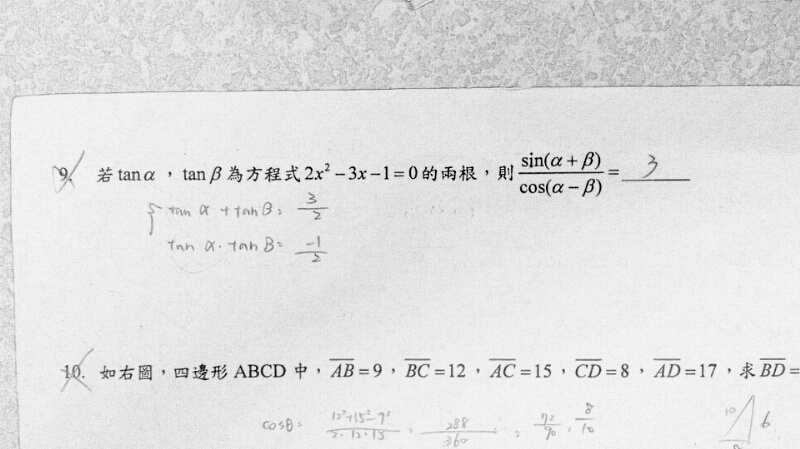 9. 若 tan α , tan β 為方程式 2x² − 3x − 1 = 0 的兩根,則 sin(α + β) / cos(α − β) = 3
{ tan α + tan β = 3/2
tan α · tan β = -1/2
10. 如右圖,四邊形 ABCD 中, A̅B̅ = 9 , B̅C̅ = 12 , A̅C̅ = 15 , C̅D̅ = 8 , A̅D̅ = 17 ,求 B̅D̅ =
cosθ = 12²+15²-9² / 2·12·15 = 288/360 = 72/90 = 8/10
10 6
8